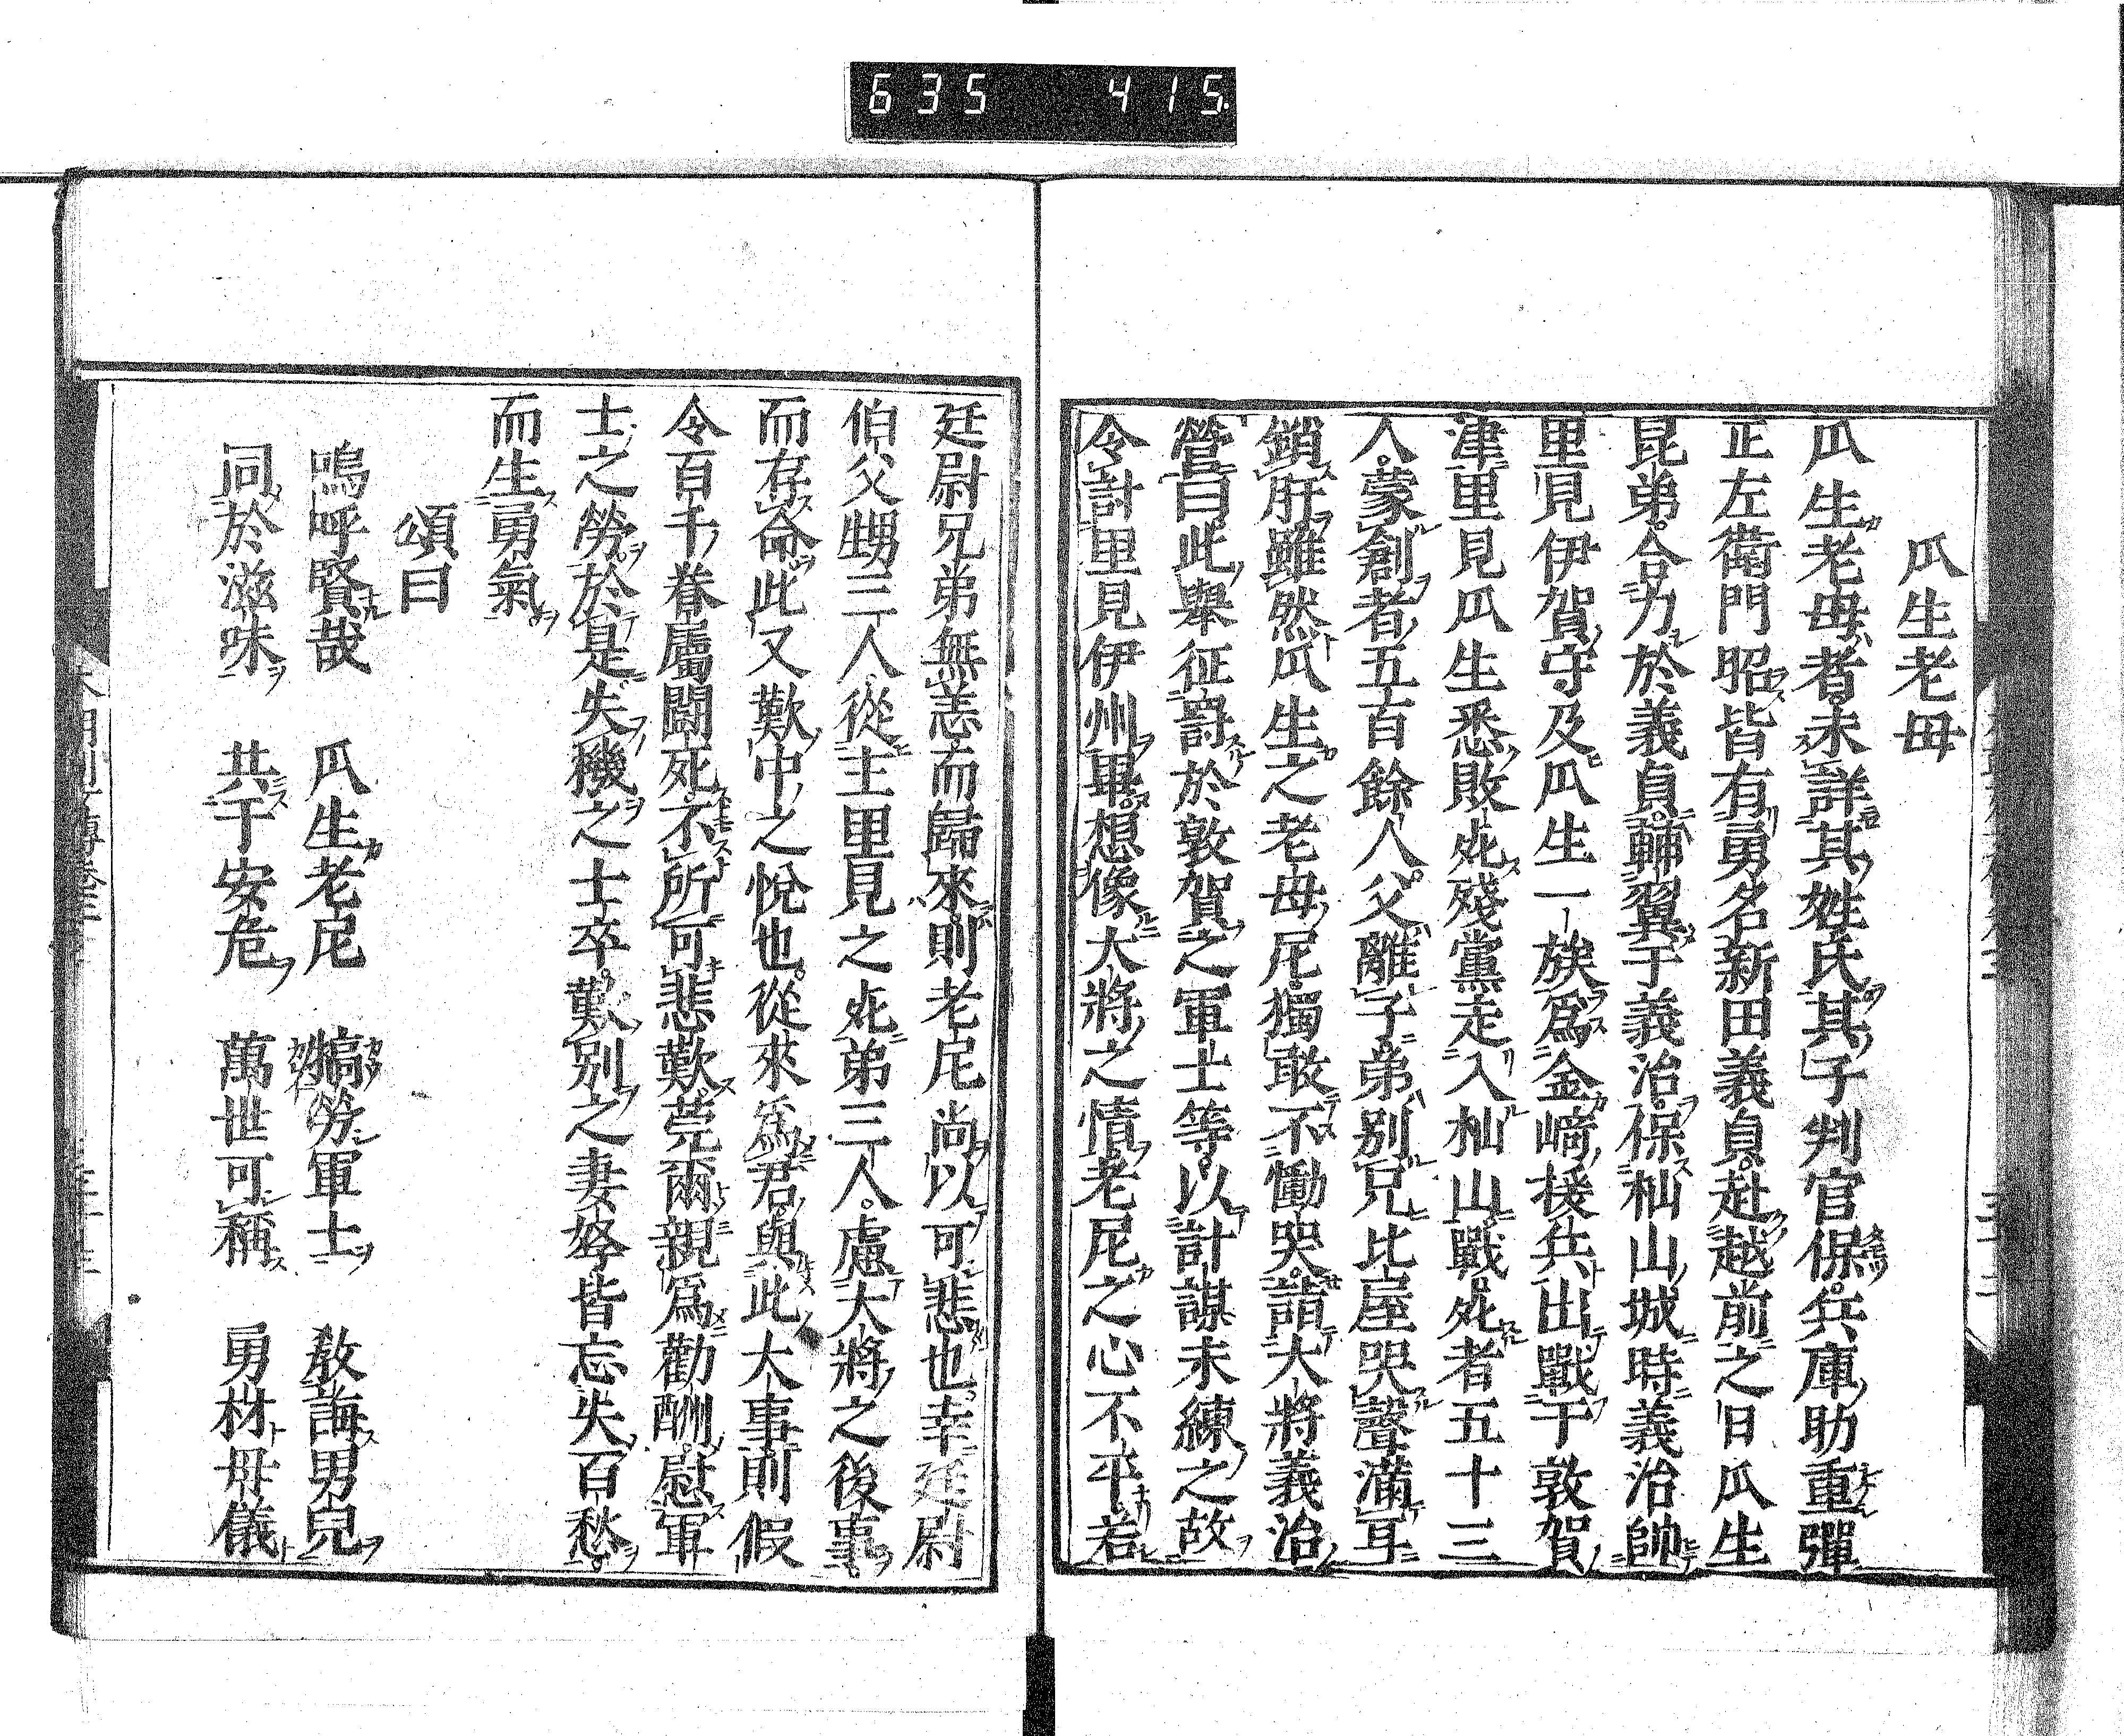 635 415
瓜生老母
瓜生老母者未詳其姓氏其子判官保兵庫助重彈
正左衛門昭皆有勇名新田義貞赴越前之日瓜生
昆弟合力於義貞輔翼于義治保杣山城時義治帥
里見伊賀守及瓜生一族爲金﨑援兵出戰于敦賀
津里見瓜生悉敗死殘黨走入杣山戰死者五十三
人蒙創者五百餘人父離子弟別兄比屋哭聲滿耳
鎖肝雖然瓜生之老母尼獨敢不慟哭詣大將義治
營曰此舉征討於敦賀之軍士等以計謀未練之故
令計里見伊州畢想像大將之情老尼之心不平若
廷尉兄弟無恙而歸來則老尼尚以可悲也幸廷尉
伯父甥三人從主里見之死弟三人慮大將之後事
而存命此又歎中之悅也從來爲君與此大事則假
令百千眷屬鬪死不所可悲歎莞爾親爲勸酬慰軍
士之勞於是失機之士卒歎別之妻孥皆忘失百愁
而生勇氣
頌曰
嗚呼賢哉 瓜生老尼 犒勞軍士 教誨男兒
同於滋味 共于安危 萬世可稱 勇材母儀